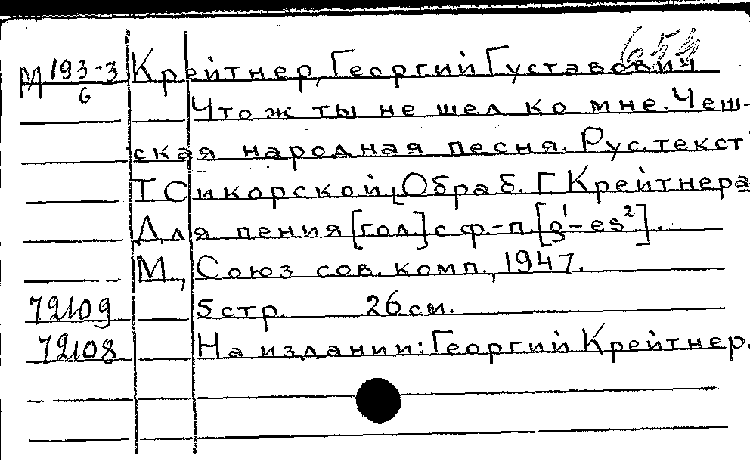 654
М 193-3 Крейтнер, Георгий Густавович
6
Что ж ты не шел ко мне. Чеш-
ская народная песня. Рус. текст
Т Сикорской, Обраб. Г. Крейтнера
Для пения [гол.] с ф-п. [g¹-es²].
М., Союз сов. комп., 1947.
72109 5 стр. 26 см.
72108 На издании: Георгий Крейтнер.